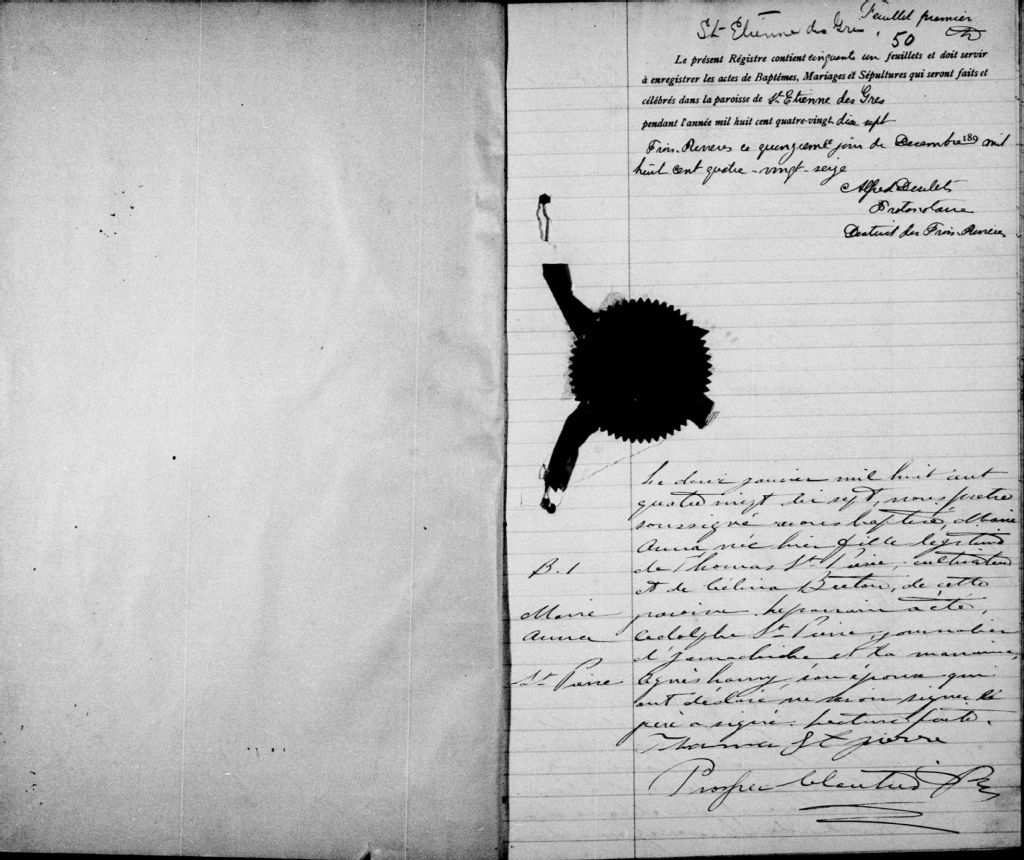 Feuillet premier
St Etienne des Gres
50
Le présent Régistre contient cinquante un feuillets et doit servir
à enregistrer les actes de Baptêmes, Mariages et Sépultures qui seront faits et
célébrés dans la paroisse de St. Etienne des Gres
pendant l'année mil huit cent quatre-vingt. dix sept
Trois-Rivieres ce quinzieme jour de Decembre 189 mil
huit cent quatre-vingt-seize
Alfred Desilets
Protonotaire
District des Trois-Rivieres
Le deux janvier mil huit cent
quatre vingt dix sept, nous prêtre
soussigné avons baptisé, Marie
Anna née hier fille légitime
B. 1
de Thomas St Pierre, cultivateur
et de Célina Breton, de cette
Marie
paroisse. Le parrain a été,
Anna
Adolphe St Pierre, journalier
d'Yamachiche et la marraine,
St Pierre
Agnès son épouse qui
ont déclaré ne savoir signer le
père a signé. Lecture faite.
Thomas St pierre
Prosper Cloutier Ptre